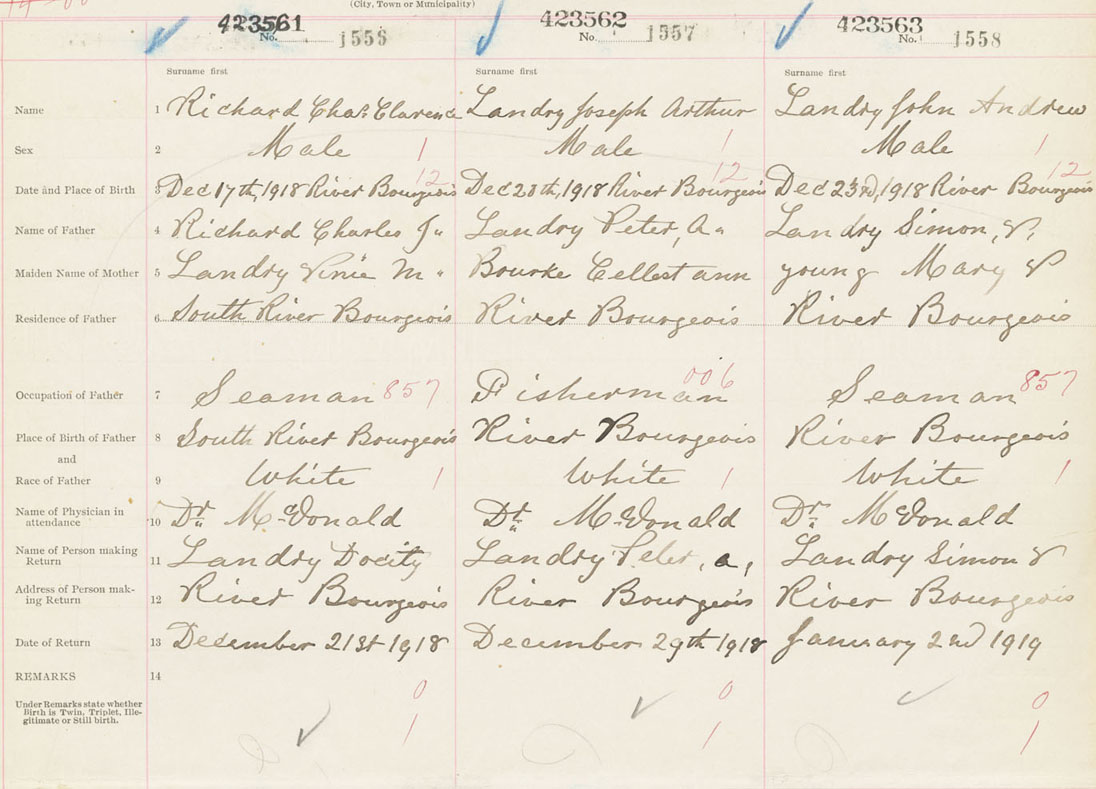 (City, Town or Municipality)
423561 423562 423563
No. 1556 No. 1557 No. 1558
Surname first Surname first Surname first
Name 1 Richard Chas. Clarence Landry Joseph Arthur Landry John Andrew
Sex 2 Male 1 Male 1 Male 1
12 12 12
Date and Place of Birth 3 Dec 17th, 1918 River Bourgeois Dec 20th, 1918 River Bourgeois Dec 23rd, 1918 River Bourgeois
Name of Father 4 Richard Charles J" Landry Peter, A" Landry Simon,
Maiden Name of Mother 5 Landry Vinie M" Bourke Cellest ann young Mary
Residence of Father 6 South River Bourgeois River Bourgeois River Bourgeois
Occupation of Father 7 Seaman 857 Fisherman 006 Seaman 857
Place of Birth of Father 8 South River Bourgeois River Bourgeois River Bourgeois
and
Race of Father 9 White 1 White 1 White 1
Name of Physician in
attendance 10 Dr. McDonald Dr. McDonald Dr. McDonald
Name of Person making
Return 11 Landry Docity Landry Peter, a, Landry Simon
Address of Person mak-
ing Return 12 River Bourgeois River Bourgeois River Bourgeois
Date of Return 13 December 21st 1918 December 29th 1918 January 2nd 1919
REMARKS 14
Under Remarks state whether
Birth is Twin, Triplet, Ille-
gitimate or Still birth.
0 0 0
1 1 1